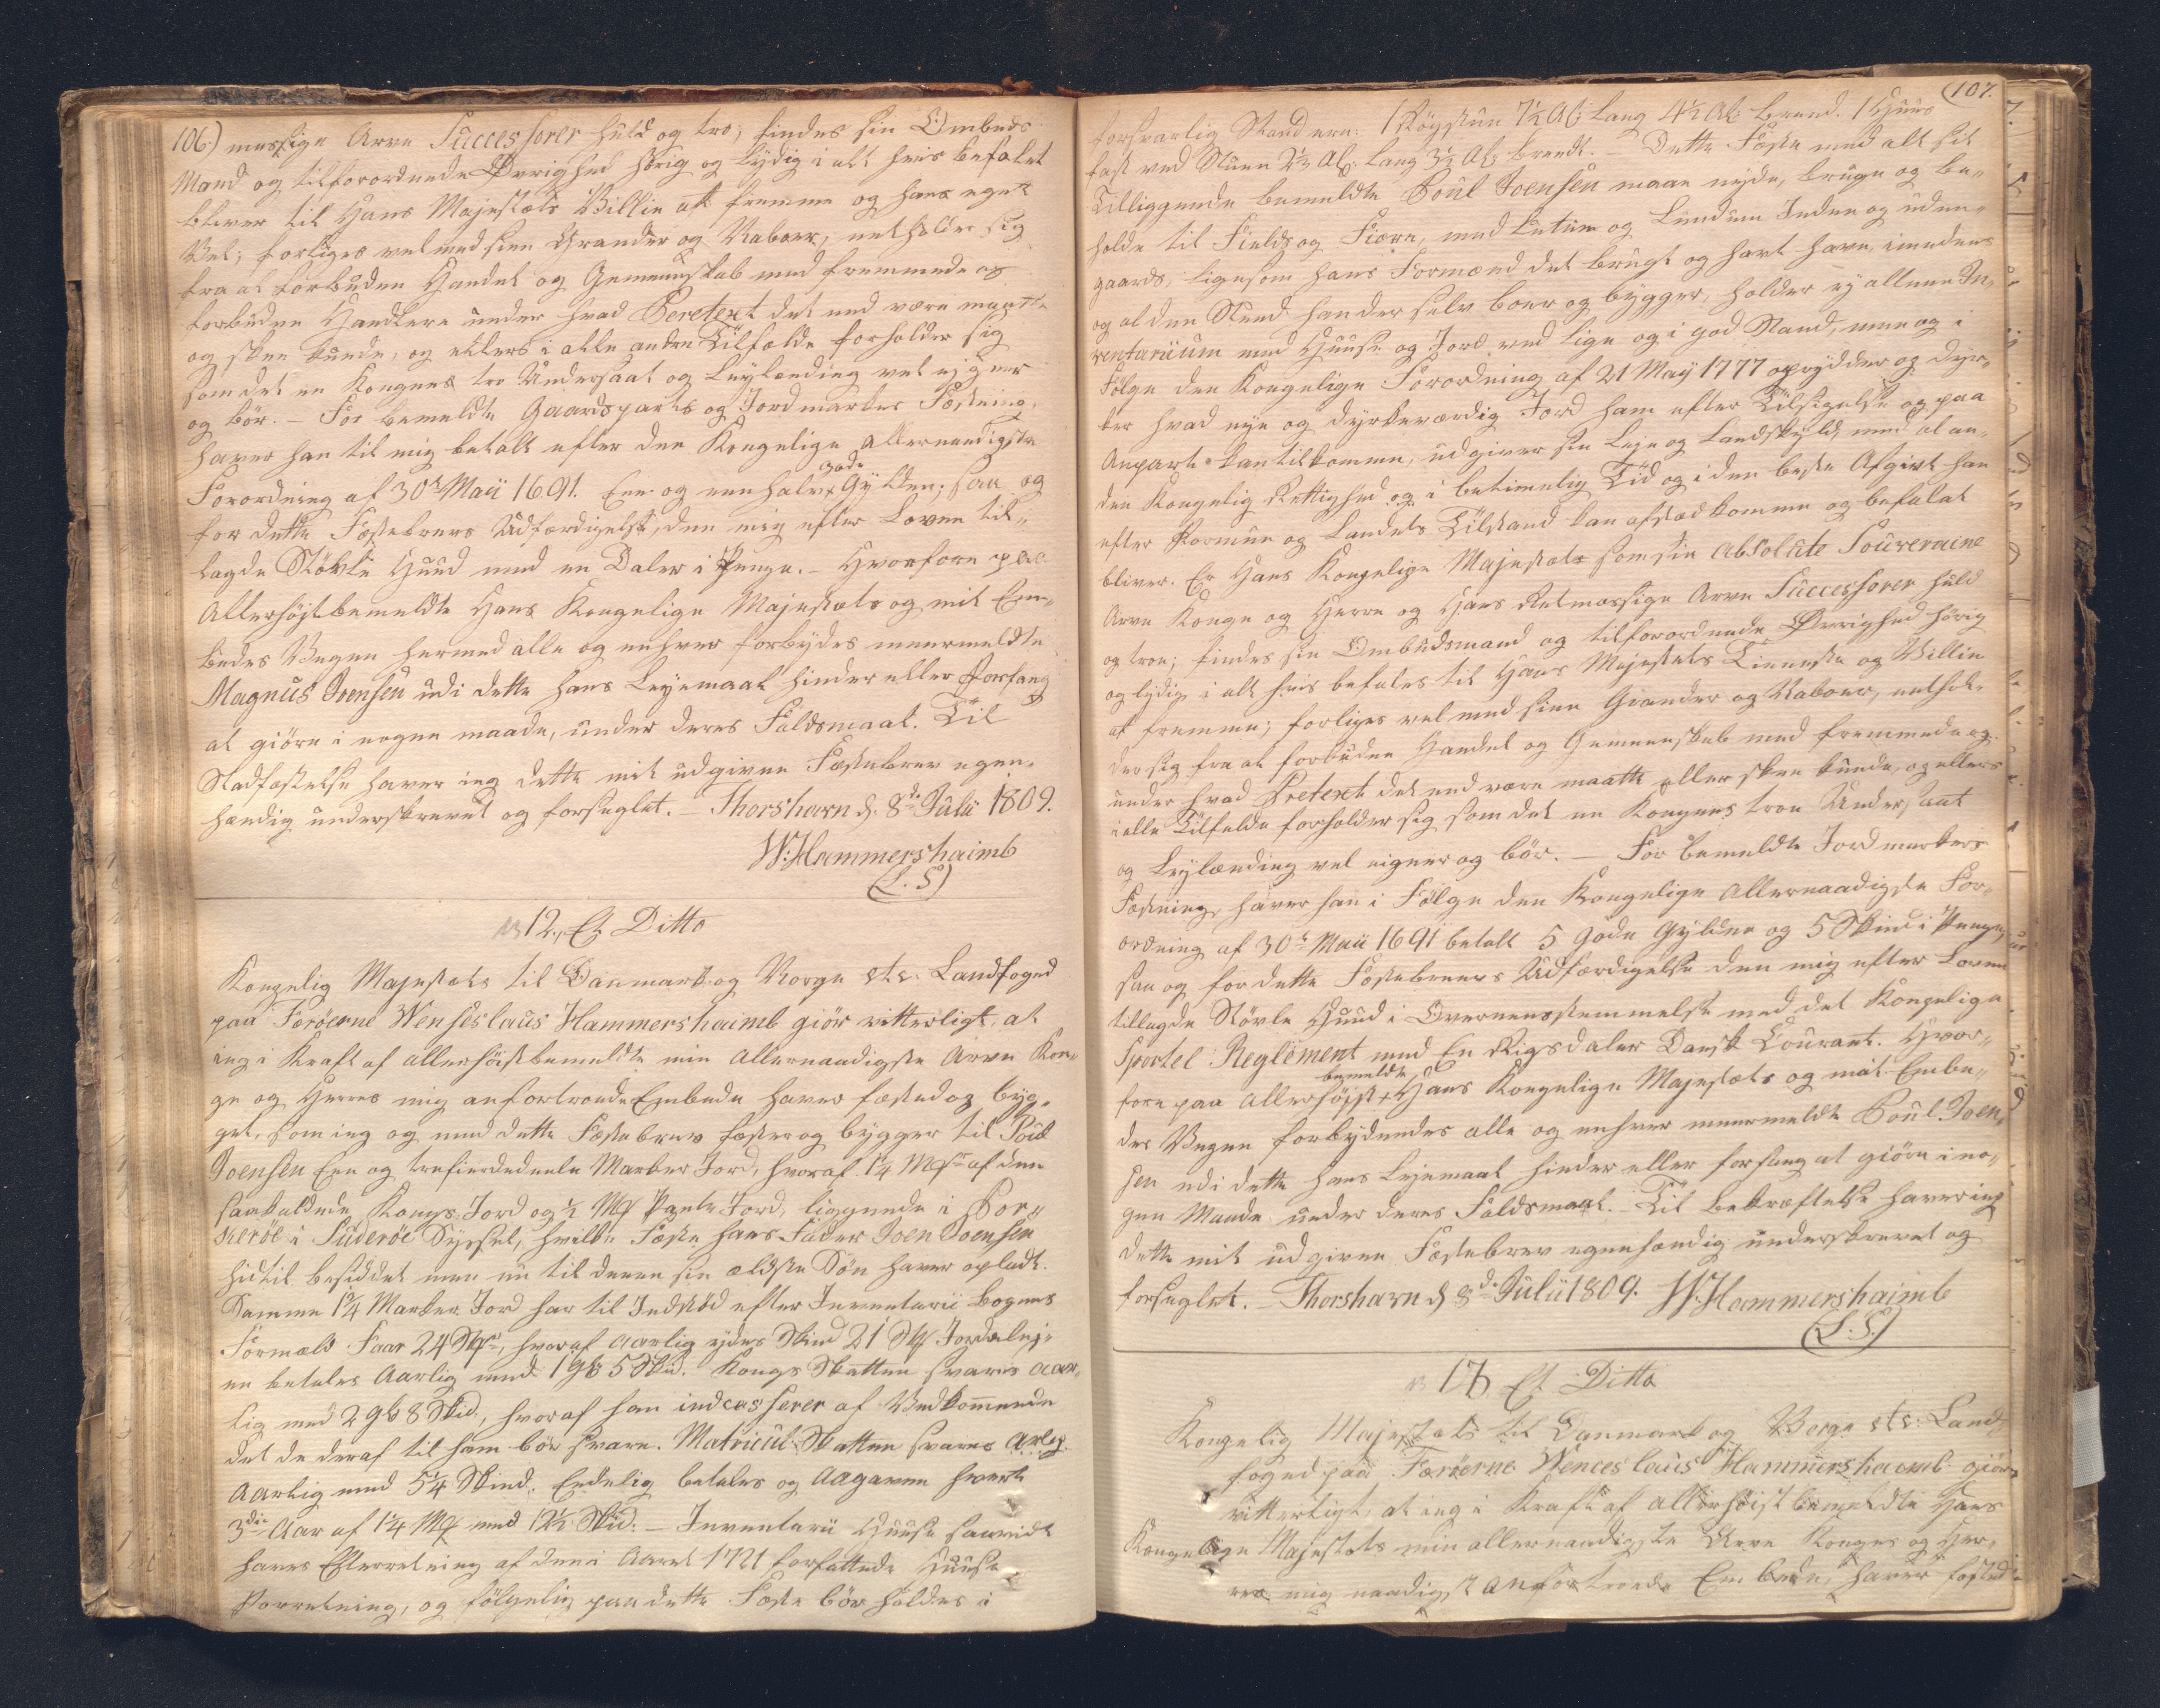 106.) mæssige Arve Successorer huld og tro, findes sin Ombuds
Mand og tilforordnede Øvrighed hørig og lydig i alt hvis befalet
bliver til Hans Majestæts Villie at fremme og hans eget
Vel; forliges vel med sine Grander og Naboer, entholder sig
fra al forbuden Handel og Gemeenskab med fremmede og
forbudne Handlere under hvad Peretext det end være maatte
og skee kunde, og ellers i alle andre Tilfælde forholder sig
som det en Kongens tro Undersaat og Leylænding vel eigner
og bör. – For bemeldte Gaardsparts og Jordmarkes Fæstning,
haver han til mig betalt efter den Kongelige allernaadigste
Forordning af 30te Maii 1691. Een og een halv gode Gylden; saa og
for dette Fæstebrevs Udfærdigelse, den mig efter Loven til-
lagde Stövle Huud med en Daler i Penge. – Hvorfore paa
Allerhöjstbemeldte Hans Kongelige Majestæts og mit Em-
bedes Vegne hermed alle og enhver forbydes meermeldte
Magnus Joensen udi dette hans Leyemaal hinder eller Forfang
at giöre i nogen maade, under deres Faldsmaal. Til
Stadfæstelse haver ieg dette mit udgivne Fæstebrev egen-
hændig underskrevet og forseglet. – Thorshavn d. 8de Julii 1809.
W: Hammershaimb
(L. S)
No 12., Et Ditto
Kongelig Majestæts til Danmark og Norge etc: Landfoged
paa Færöerne Wenseslaus Hammershaimb giör vitterligt, at
ieg i Kraft af allerhöistbemeldte min Allernaadigste Arve Kon-
ge og Herres mig anfortroede Embede haver fæsted og byg-
get, som ieg og med dette Fæstebrev fæster og bygger til Poul
Joensen Een og trefierdedeele Marker Jord, hvoraf 1¼ Mk af den
saakaldede Kongs Jord og ½ Mk Pante Jord, liggende i Por-
keröe i Suderöe Syssel, hvilke Fæste hans Fader Joen Joensen
hidtil besiddet men nu til denne sin ældste Sön haver opladt.
Samme 1¾ Marker Jord har til Indstöd efter Inventarii Bogens
Formeld Faar 24 Stk, hvoraf aarlig ydes Skind 21 Stk Jordelej-
en betales Aarlig med 1 gl 5 Skd. Kongs Skatten svares aar-
lig med 2 gl 8 Skd., hvoraf han indcasserer af Vedkommende
det de deraf til ham bör svare. Matricul: Skatten svares
Aarlig med 5¼ Skind. Endelig betales og Aagaven hvert
3die Aar af 1¼ Mk med 12½ Skd. – Inventarii Huuse saavidt
haves Efterretning af den i Aaret 1721 forfattede Huuse
Forretning, og fölgelig paa dette Fæste bör holdes i
(107.
forsvarlig Stand ere: 1 Røgstue 7½ Al: lang 4½ Al: breed. 1 Huus
fast ved Stuen 2½ Al: lang 3½ Al: bredt. – Dette Fæste med alt sit
Tilliggende bemeldte Poul Joensen maae nyde, bruge og be-
holde til Fields og Fiære, med Lutum og Lundum Inden og uden-
gaards, ligesom hans Formænd det brugt og havt have, imedens
og al den Stund han der selv boer og bygger, holder ey alleene In-
ventarium med Huuse og Jord ved lige og i god Stand, men og i
Fölge den Kongelige Forordning af 21 May 1777 oprydder og dyr-
ker hvad nye og dyrkeværdig Jord ham efter Tilsigelse og paa
Anpart kan tilkomme, udgiver sin Leje og Landskyld, med al an-
den Kongelig Rettighed og i betimelig Tid og i den beste Afgivt han
efter Formue og Landets Tilstand kan afstædkomme og befalet
bliver. Er Hans Kongelige Majestæts som sin Absolute Souveraine
Arve Konge og Herre og Hans Retmæssige Arve Successorer huld
og troe; findes sin Ombudsmand og tilforordnede Øvrighed hörig
og lydig i alt hvis befales til Hans Majestæts Tieneste og Villie
at fremme; forliges vel med sine Grander og Naboer, enthol-
der sig fra al forbuden Handel og Gemeenskab med fremmede og
under hvad Pretext det end være maatte eller skee kunde, og ellers
i alle Tilfælde forholder sig som det en Kongens troe Undersaat
og Leylænding vel eigner og bör. – For bemeldte Jordmarkers
Fæstning, haver han i Fölge den Kongelige Allernaadigste For-
ordning af 30te Maii 1691 betalt 5 gode Gylden og 5 Skind i Penge,
saa og for dette Fæstebrevs Udfærdigelse den mig efter Loven
tillagde Stövle Huud i Overeensstemmelse med det Kongelige
Sportel: Reglement med En Rigsdaler Dansk Courant. Hvor-
fore paa Allerhöjst bemeldte Hans Kongelige Majestæts og mit Embe-
des Vegne forbydendes alle og enhver meermeldte Poul Joen-
sen udi dette hans Lejemaal hinder eller forfang at giöre i no-
gen Maade under deres Faldsmaal. Til bekræftelse haver ieg
dette mit udgivne Fæstebrev egenhændig underskrevet og
forseglet. – Thorshavn d 8de Julii 1809. W: Hammershaimb
(L. S.)
Et Ditto
Kongelig Majestæts til Danmark og Norge etc: Land-
foged paa Færöerne Wenceslaus Hammershaimb giör
vitterligt, at ieg i Kraft af allerhöist bemeldte Hans
Kongelige Majestæts min allernaadigste Arve Konges og Her-
res mig naadigst anfortroede Embede, haver fæsted